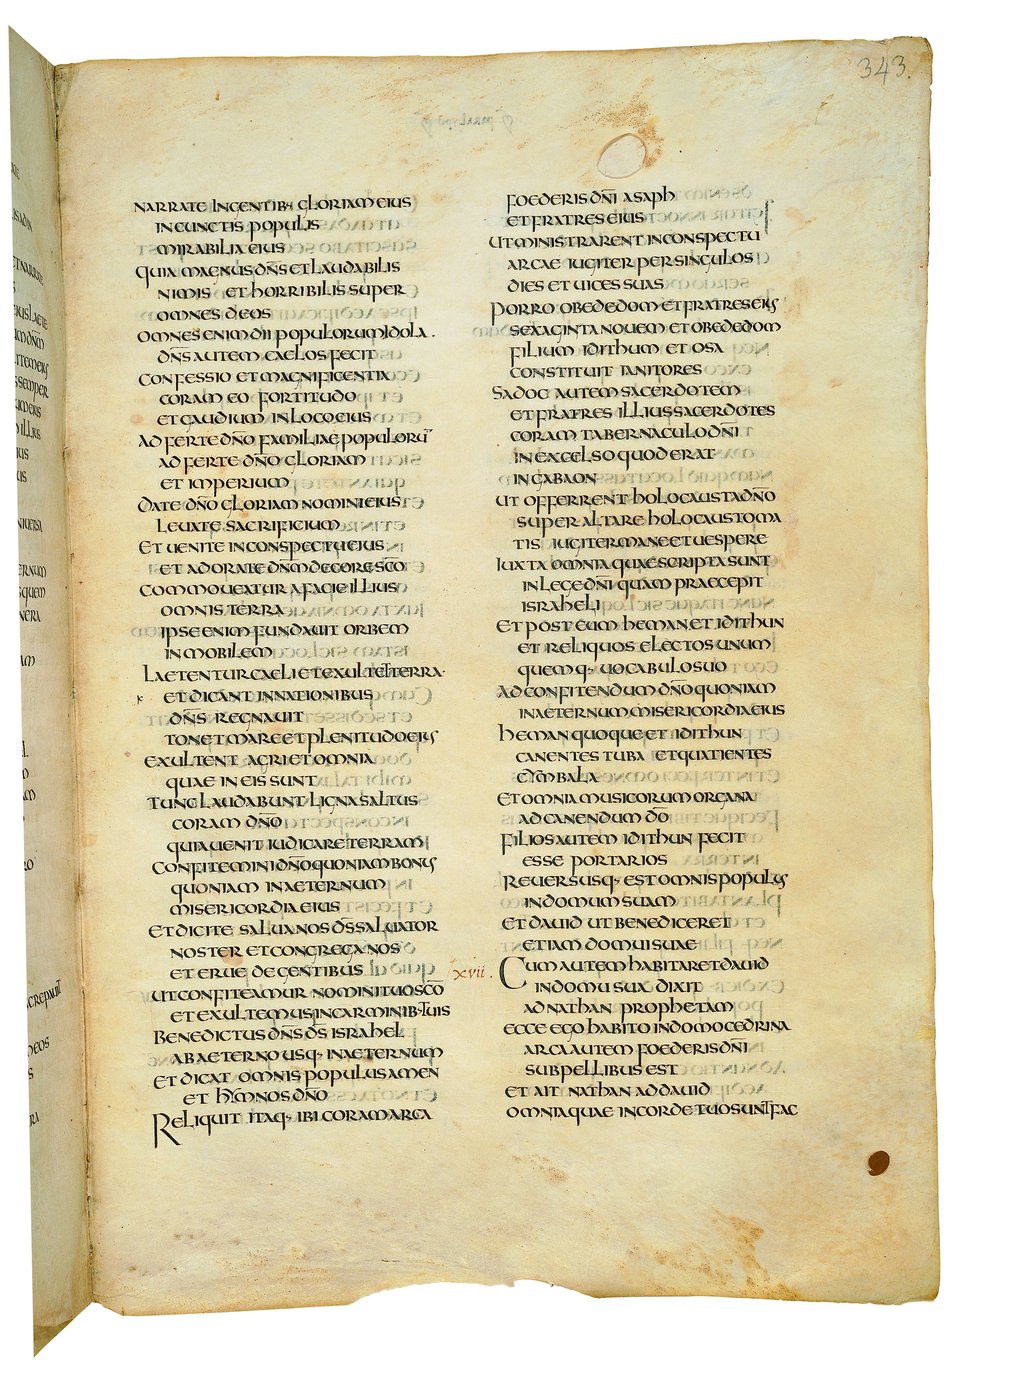 343.
NARRATE INGENTIB· GLORIAM EIUS
IN CUNCTIS POPULIS
MIRABILIA EIUS
QUIA MAGNUS DN̄S ET LAUDABILIS
NIMIS ET HORRIBILIS SUPER
OMNES DEOS
OMNES ENIM DII POPULORUM IDOLA.
DN̄S AUTEM CAELOS FECIT
CONFESSIO ET MAGNIFICENTIA
CORAM EO FORTITUDO
ET GAUDIUM IN LOCO EIUS
ADFERTE DN̄O FAMILIAE POPULORU̅
ADFERTE DN̄O GLORIAM
ET IMPERIUM
DATE DN̄O GLORIAM NOMINI EIUS
LEUATE SACRIFICIUM
ET UENITE IN CONSPECTU EIUS
ET ADORATE DN̄M DECORE SC̄O
COMMOUEATUR A FACIE ILLIUS
OMNIS TERRA
IPSE ENIM FUNDAUIT ORBEM
INMOBILEM
LAETENTUR CAELI ET EXULTET TERRA·
ET DICANT IN NATIONIBUS
DN̄S REGNAUIT
TONET MARE ET PLENITUDO EIUS
EXULTENT AGRI ET OMNIA
QUAE IN EIS SUNT
TUNC LAUDABUNT LIGNA SALTUS
CORAM DN̄O
QUIA UENIT IUDICARE TERRAM
CONFITEMINI DN̄O QUONIAM BONUS
QUONIAM IN AETERNUM
MISERICORDIA EIUS
ET DICITE SALUA NOS D̄S SALUATOR
NOSTER ET CONGREGA NOS
ET ERUE DE GENTIBUS
UT CONFITEAMUR NOMINI TUO SC̄O
ET EXULTEMUS IN CARMINIB· TUIS
BENEDICTUS DN̄S D̄S ISRAHEL
AB AETERNO USQ· IN AETERNUM
ET DICAT OMNIS POPULUS AMEN
ET HYMNOS DN̄O
RELIQUIT ITAQ· IBI CORAM ARCA
FOEDERIS DN̄I ASAPH
ET FRATRES EIUS
UT MINISTRARENT IN CONSPECTU
ARCAE IUGITER PER SINGULOS
DIES ET UICES SUAS
PORRO OBEDEDOM ET FRATRES EIUS
SEXAGINTA NOUEM ET OBEDEDOM
FILIUM IDITHUM ET OSA
CONSTITUIT IANITORES
SADOC AUTEM SACERDOTEM
ET FRATRES ILLIUS SACERDOTES
CORAM TABERNACULO DN̄I
IN EXCELSO QUOD ERAT
IN GABAON
UT OFFERRENT HOLOCAUSTA DN̄O
SUPER ALTARE HOLOCAUSTOMA
TIS IUGITER MANE ET UESPERE
IUXTA OMNIA QUAE SCRIPTA SUNT
IN LEGE DN̄I QUAM PRAECEPIT
ISRAHELI
ET POST EUM HEMAN ET IDITHUN
ET RELIQUOS ELECTOS UNUM
QUEMQ· UOCABULO SUO
AD CONFITENDUM DN̄O QUONIAM
IN AETERNUM MISERICORDIA EIUS
HEMAN QUOQUE ET IDITHUN
CANENTES TUBA ET QUATIENTES
CYMBALA
ET OMNIA MUSICORUM ORGANA
AD CANENDUM D̄O
FILIOS AUTEM IDITHUN FECIT
ESSE PORTARIOS
REUERSUSQ· EST OMNIS POPULUS
IN DOMUM SUAM
ET DAUID UT BENEDICERET
ETIAM DOMUI SUAE
XVII. CUM AUTEM HABITARET DAUID
IN DOMU SUA DIXIT
AD NATHAN PROPHETAM
ECCE EGO HABITO IN DOMO CEDRINA
ARCA AUTEM FOEDERIS DN̄I
SUB PELLIBUS EST
ET AIT NATHAN AD DAUID
OMNIA QUAE IN CORDE TUO SUNT FAC